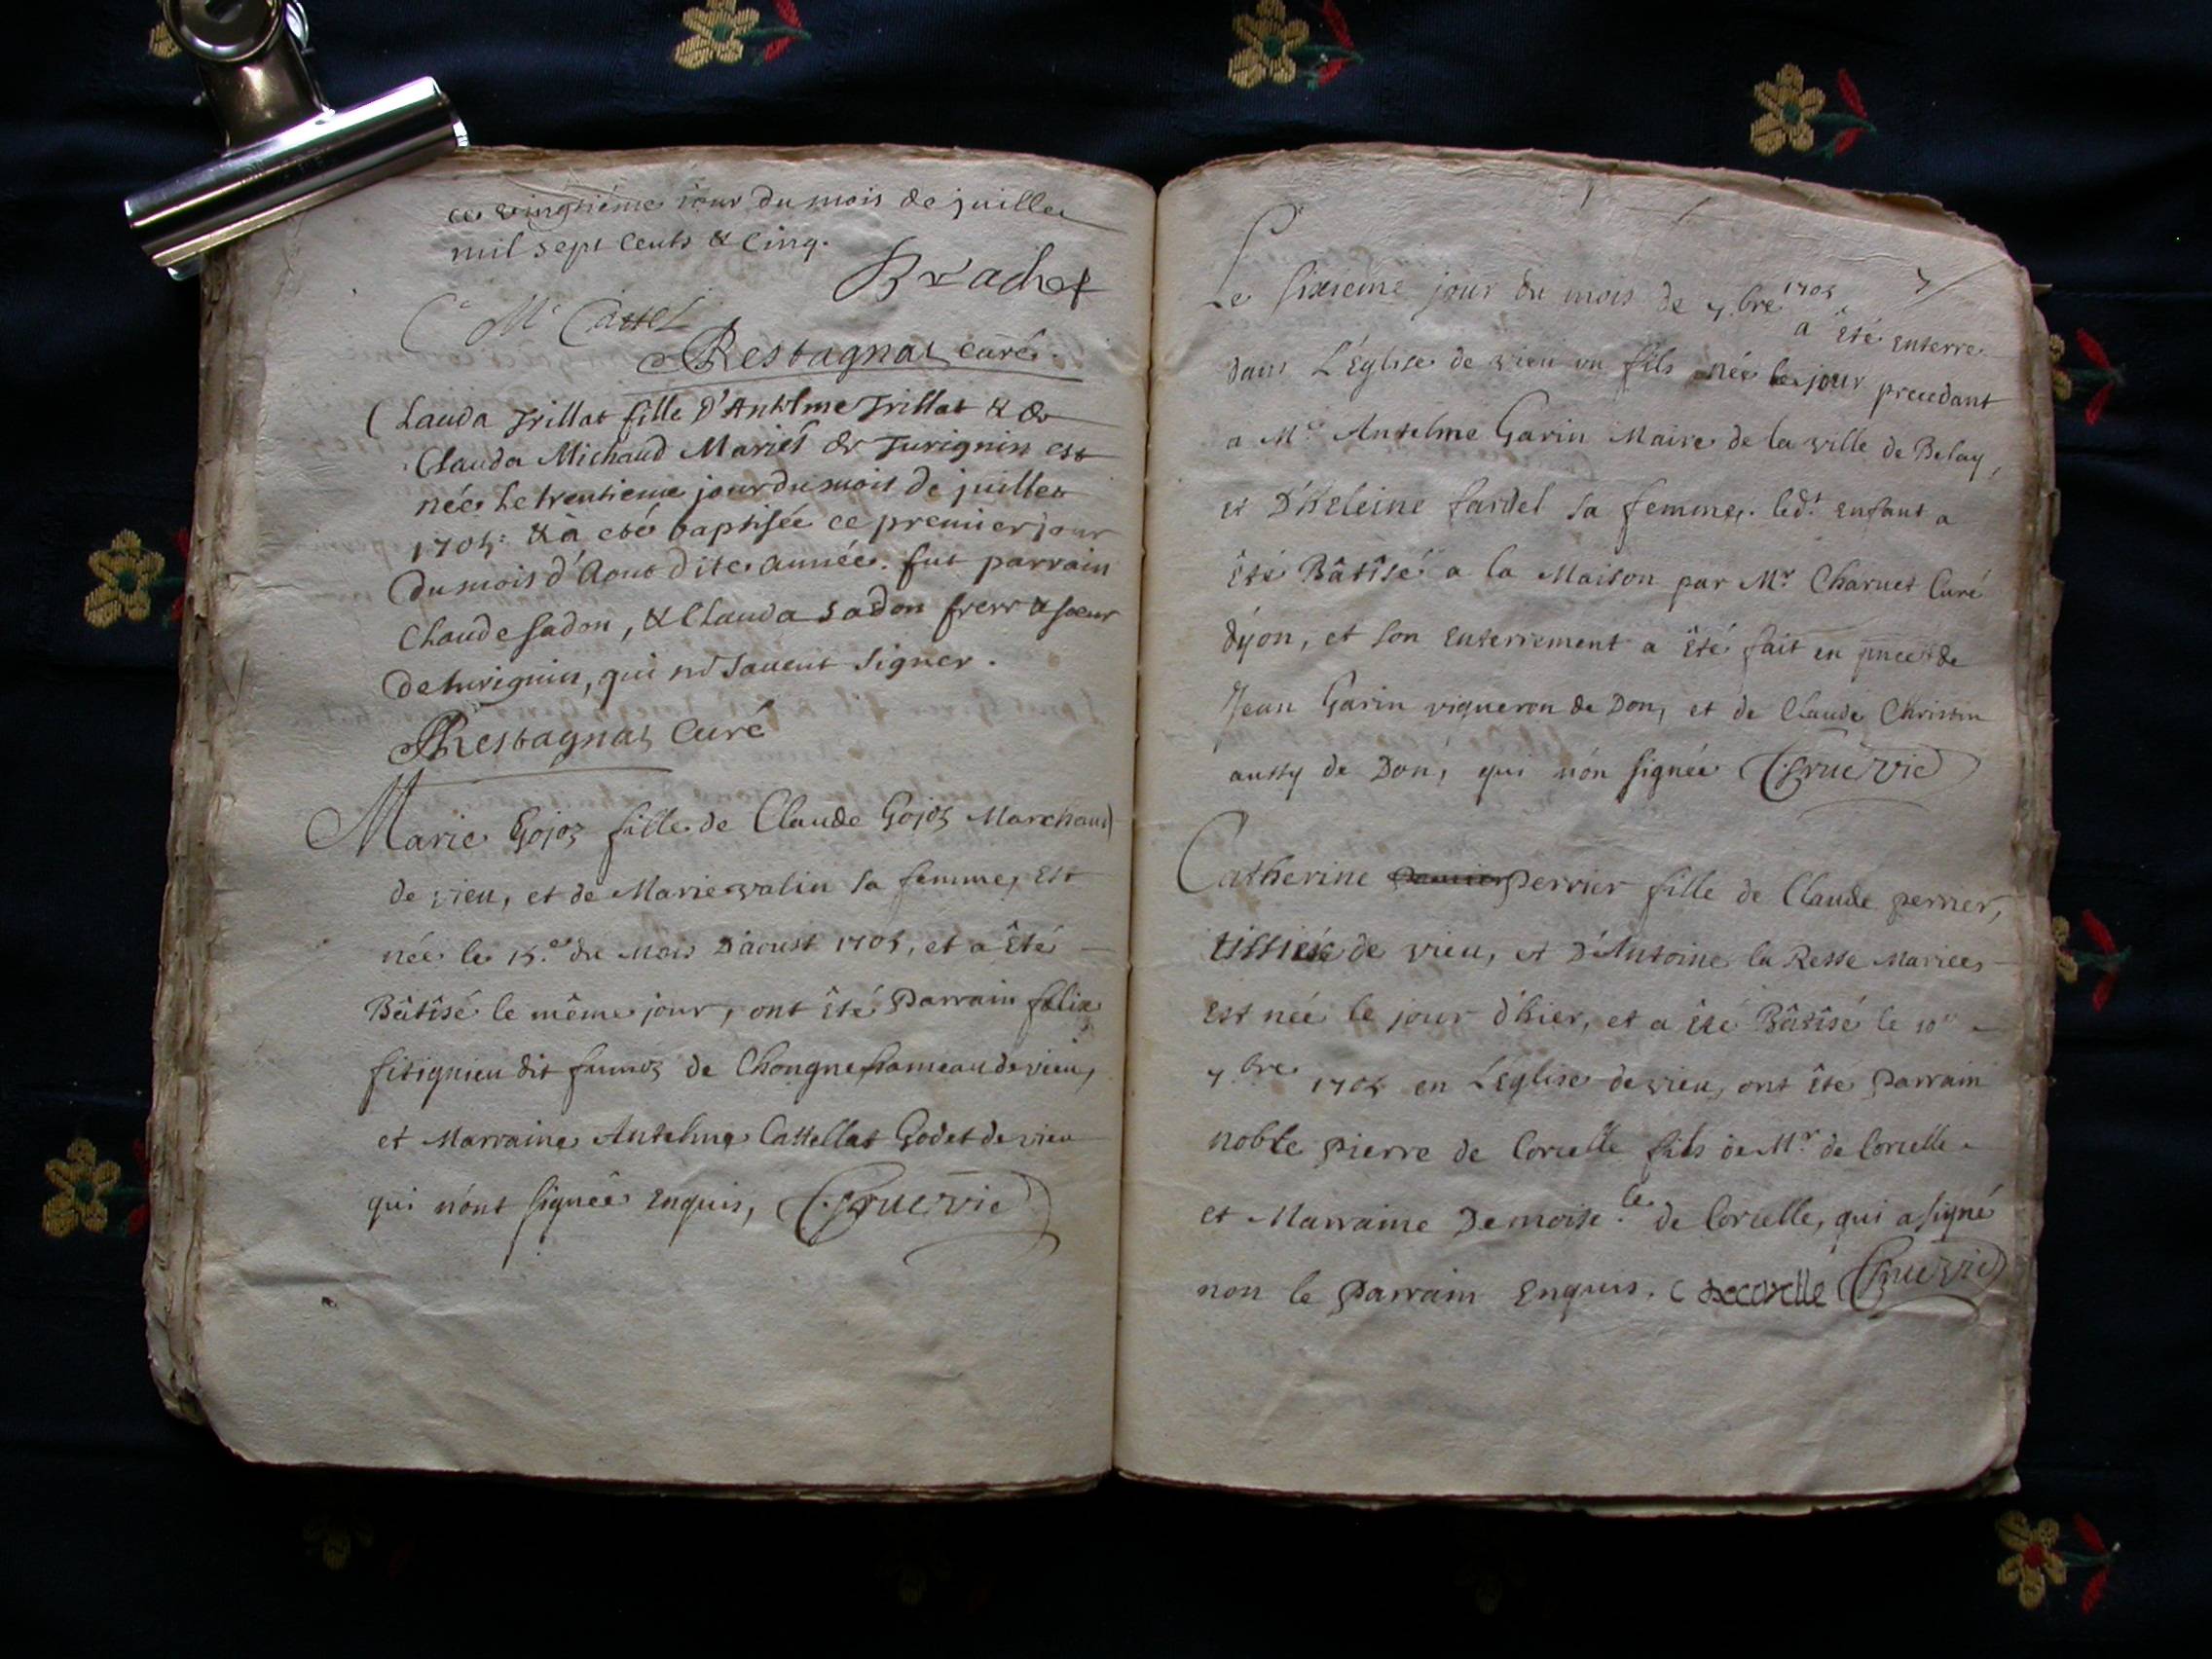 ce vingtiéme jour du mois de juillet
mil sept cents & cinq.
Brachet
C Me Cattel
Restagnat curé.
Clauda Trillat fille D'Anthlme Trillat & de
Clauda Michaud Mariés de Turignin est
née le trentieme jour du mois de juillet
1705: & à eté baptisée ce premier jour
du mois d'Aout dite année. fut parrain
Claude sadon, & Clauda sadon frere & soeur
de turignin, qui ne sauent signer.
Restagnat Curé
Marie Gojoz fille de Claude Gojoz Marchand
de vieu, et de Marie valin sa femme, Est
née le 15.e du Mois D'aoust 1705, et a Êté
Bâtîsé le même jour, ont Êté Parrain felix
fitignieu dit de Chongne hameau de vieu,
et Marraine Antelme Cattellat Godet de vieu
qui n'ont signée Enquis, C. Gruevie
Le sixieme jour du mois de 7.bre 1705 a Êté Enterre
dans L'Eglise de vieu un fils née le jour precedant
a Mre Antelme Garin Maire de la ville de Belay,
et D'heleine fardel sa femme. led.t Enfant a
Êté Bâtîsé a la Maison par Mr Charuet Curé
dÿon, et son Enterrement a Êté fait en pnce de
Jean Garin vigneron de Don, et de Claude Christin
aussy de Don, qui nón signée C. Gruevie
Catherine Perrier fille de Claude perrier,
tissier de vieu, et D'Antoine la Resse Mariees
Est née le jour d'hier, et a Êté Bâtîsé le 10e
7.bre 1705 en L'Eglise de vieu, ont Êté Parrain
noble Pierre de Corcelle fils de Mr de Corcelle
et Marraine Demoise.le de Corcelle, qui a signé
non le Parrain Enquis. C Decorcelle Gruevie